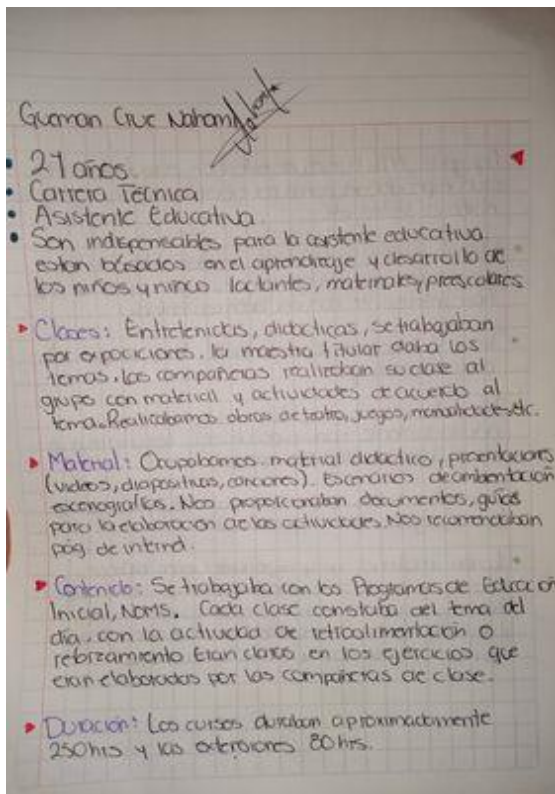 Guzman Cruz Nahomi
• 21 años
• Carrera Técnica
• Asistente Educativa
• Son indispensables para la asistente educativa
estan basados en el aprendizaje y desarrollo de
los niños y lactantes, maternales, preescolares
▸ Clases: Entretenidas, didacticas, se trabajaban
por exposiciones, la maestra titular daba los
temas, las compañeras realizaban su clase al
grupo con material y actividades de acuerdo al
tema. Realizabamos obras de teatro, juegos, manualidades, etc.
▸ Material: Ocupabamos material didactico, presentaciones
(videos, diapositivas, canciones). Escenarios de ambientación
escenografias. Nos proporcionaban documentos, guias
para la elaboración de las actividades. Nos recomendaban
pág de internd.
▸ Contenido: Se trabajaba con los Programas de Educación
Inicial, Noms. Cada clase constaba del tema del
día, con la actividad de retroalimentación o
eran claros en los ejercicios que
eran elaborados por las compañeras de clase.
▸ Duración: Los cursos duraban aproximadamente
250 hrs y las extensiones 80 hrs.